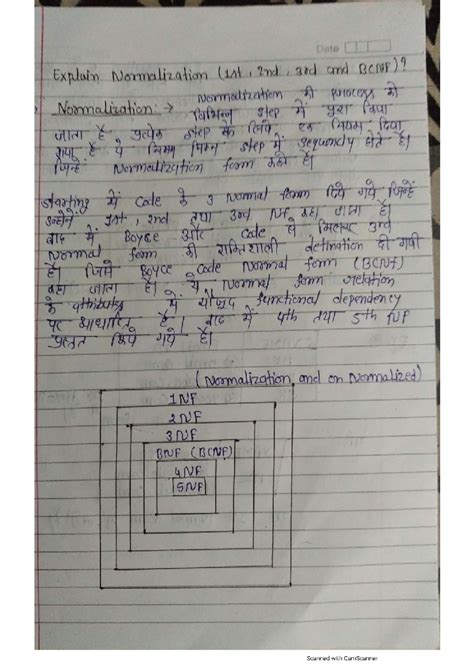 Date
Explain Normalization (1st, 2nd, 3rd and BCNF)?
Normalization: → Normalization की process को
विभिन्न step में पूरा किया
जाता है प्रत्येक step के लिये एक नियम दिया
गया है ये नियम भिन्न step में sequencly होते है।
जिन्हें Normalization form कहते है।
starting में Code ने 3 Normal form दिये गये जिन्हें
उन्होंने 1st, 2nd तथा 3rd NF कहा जाता है।
बाद में Boyce और Code ने मिलकर 3rd
Normal form की शक्तिशाली defination दी गयी
है। जिसे Boyce Code Normal form (BCNF)
कहा जाता है। ये Normal form relation
के attributes में मौजूद functional dependency
पर आधारित है। बाद में 4th तथा 5th NF
प्रस्तुत किये गये है।
(Normalization, and on Normalized)
1NF
2NF
3NF
BNF (BCNF)
4NF
5NF
Scanned with CamScanner